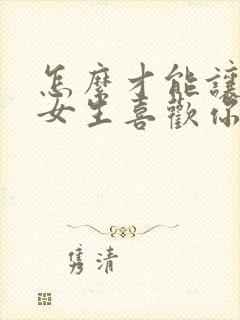 怎麼才能讓
女生喜歡你
隽清